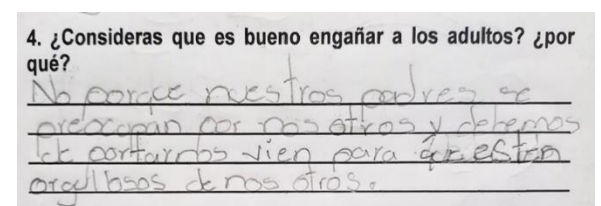 4. ¿Consideras que es bueno engañar a los adultos? ¿por
qué?
No porque nuestros padres se
preocapan por nos otros y debemos
de portarnos vien para que esten
orgullosos de nos otros.